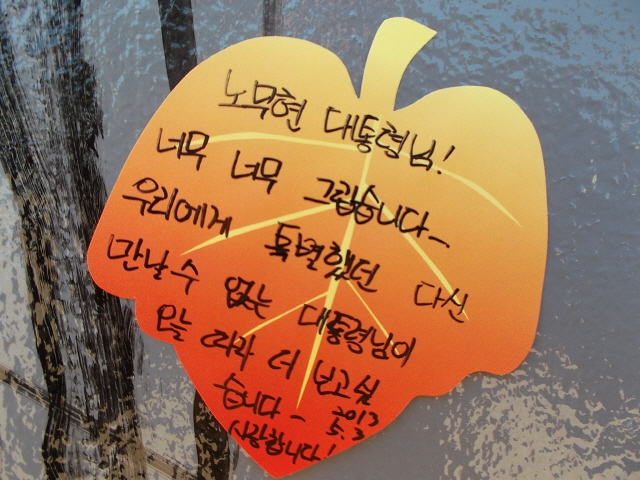 노무현 대통령님!
너무 너무 그립습니다~
우리에게 특별했던 다신
만날 수 없는 대통령님이
오늘 따라 더 보고싶
습니다~ 2013
5.3
사랑합니다!